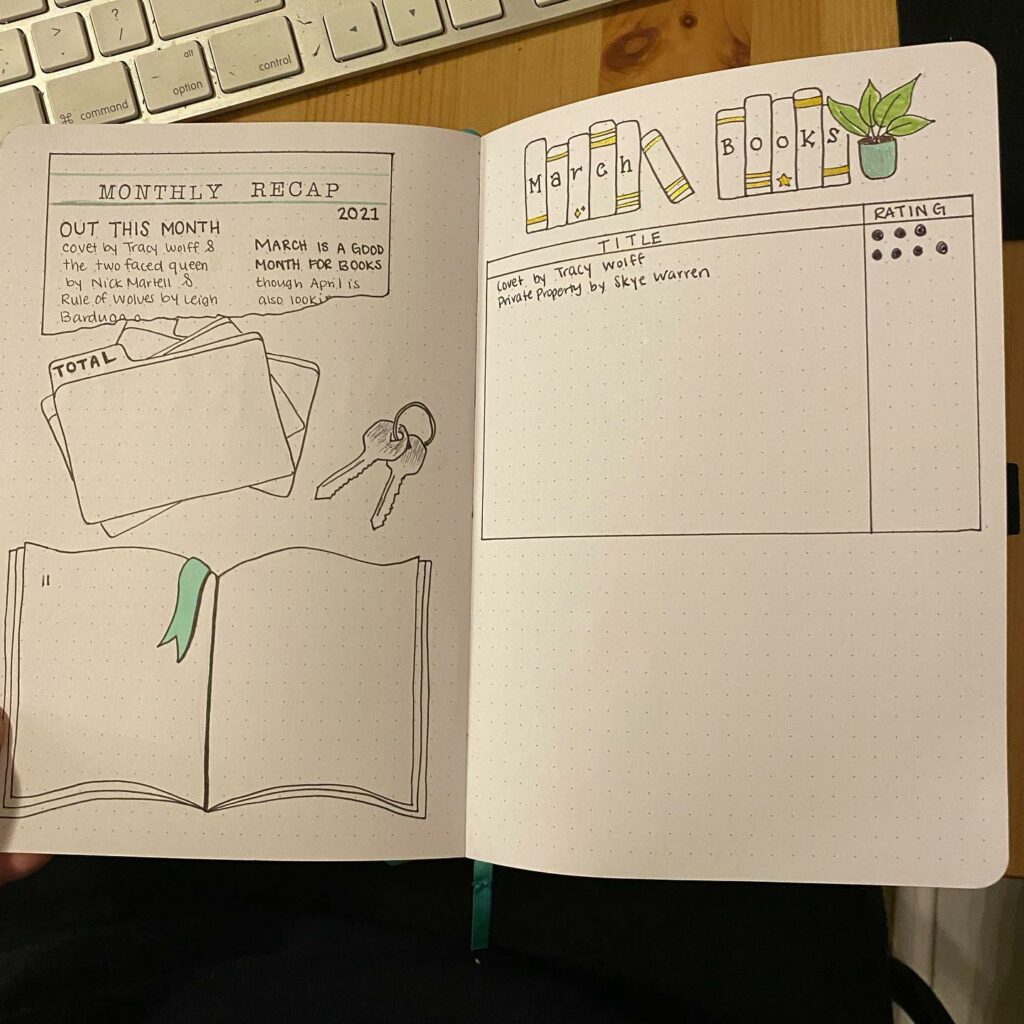 ?
/
>
.
alt
option
control
⌘ command
MONTHLY RECAP
2021
OUT THIS MONTH
covet by Tracy Wolff &
the two faced queen
by Nick Martell &
Rule of Wolves by Leigh
Bardugo
MARCH IS A GOOD
MONTH FOR BOOKS
though April is
also
TOTAL
March Books
TITLE
RATING
Covet by Tracy Wolff
Private Property by Skye Warren